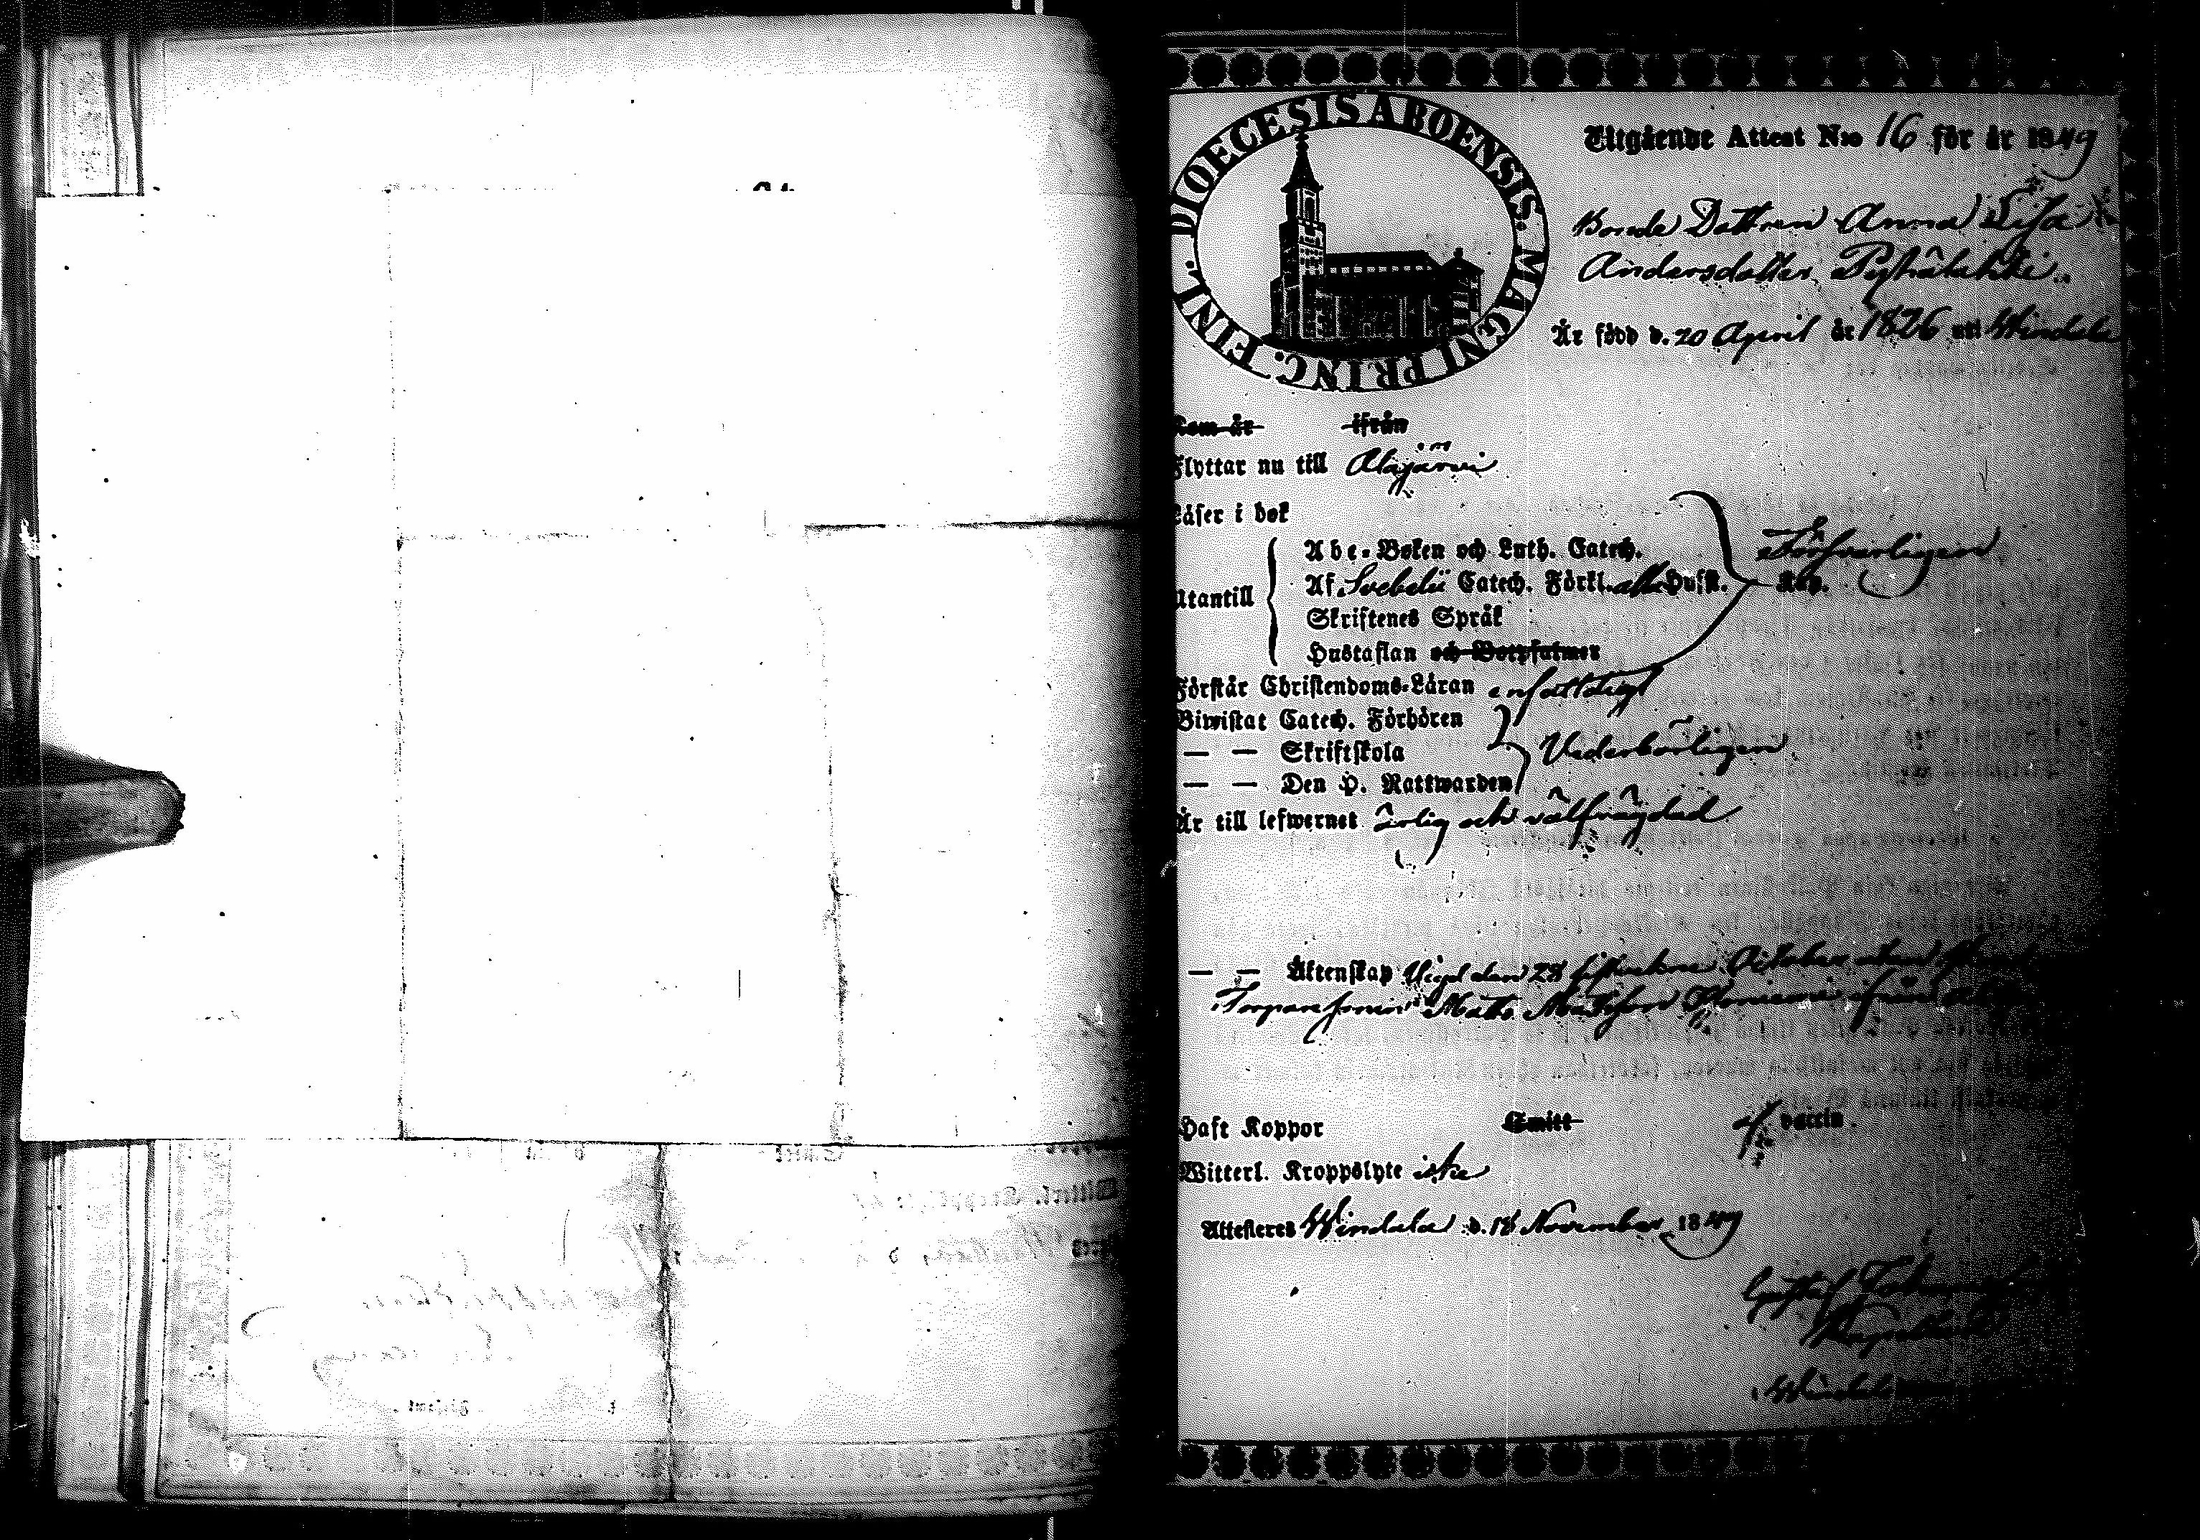 DIOECESIS ABOENSIS. MAGNI PRINC. FINL.
Utgående Attest N:o 16 för år 1849
Bonde Dottren Anna Lisa
Andersdotter Pyhälahti
Är född d. 20 April år 1826 uti Windala
Kom år ifrån
Flyttar nu till Alajärvi
Läser i bok
Abc-Boken och Luth. Catech. Försvarligen
Utantill Af Svebelii Catech. Förkl. alla Hufst. Kap.
Skriftenes Språk
Hustaflan och Botpsalmer
Förstår Christendoms-Läran enfaldigt
Biwistat Catech. Förhören
— — Skriftskola Vederbörligen
— — Den H. Nattwarden
Är till lefwernet ärlig och välfrägdad
— — Äktenskap Vigd den 28 sistvekne October med
Torparesonen Matts Mattsson ifrån
Haft Koppor Smitt vaccin.
Witterl. Kroppslyte icke
Attesteras Windala d. 18 November 1849
Gustaf
Windala